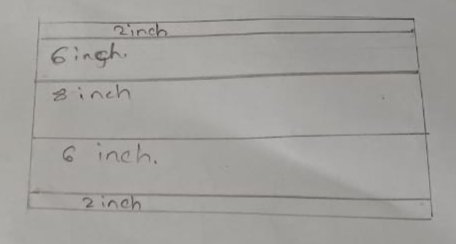 2inch
6 inch.
8 inch
6 inch.
2 inch